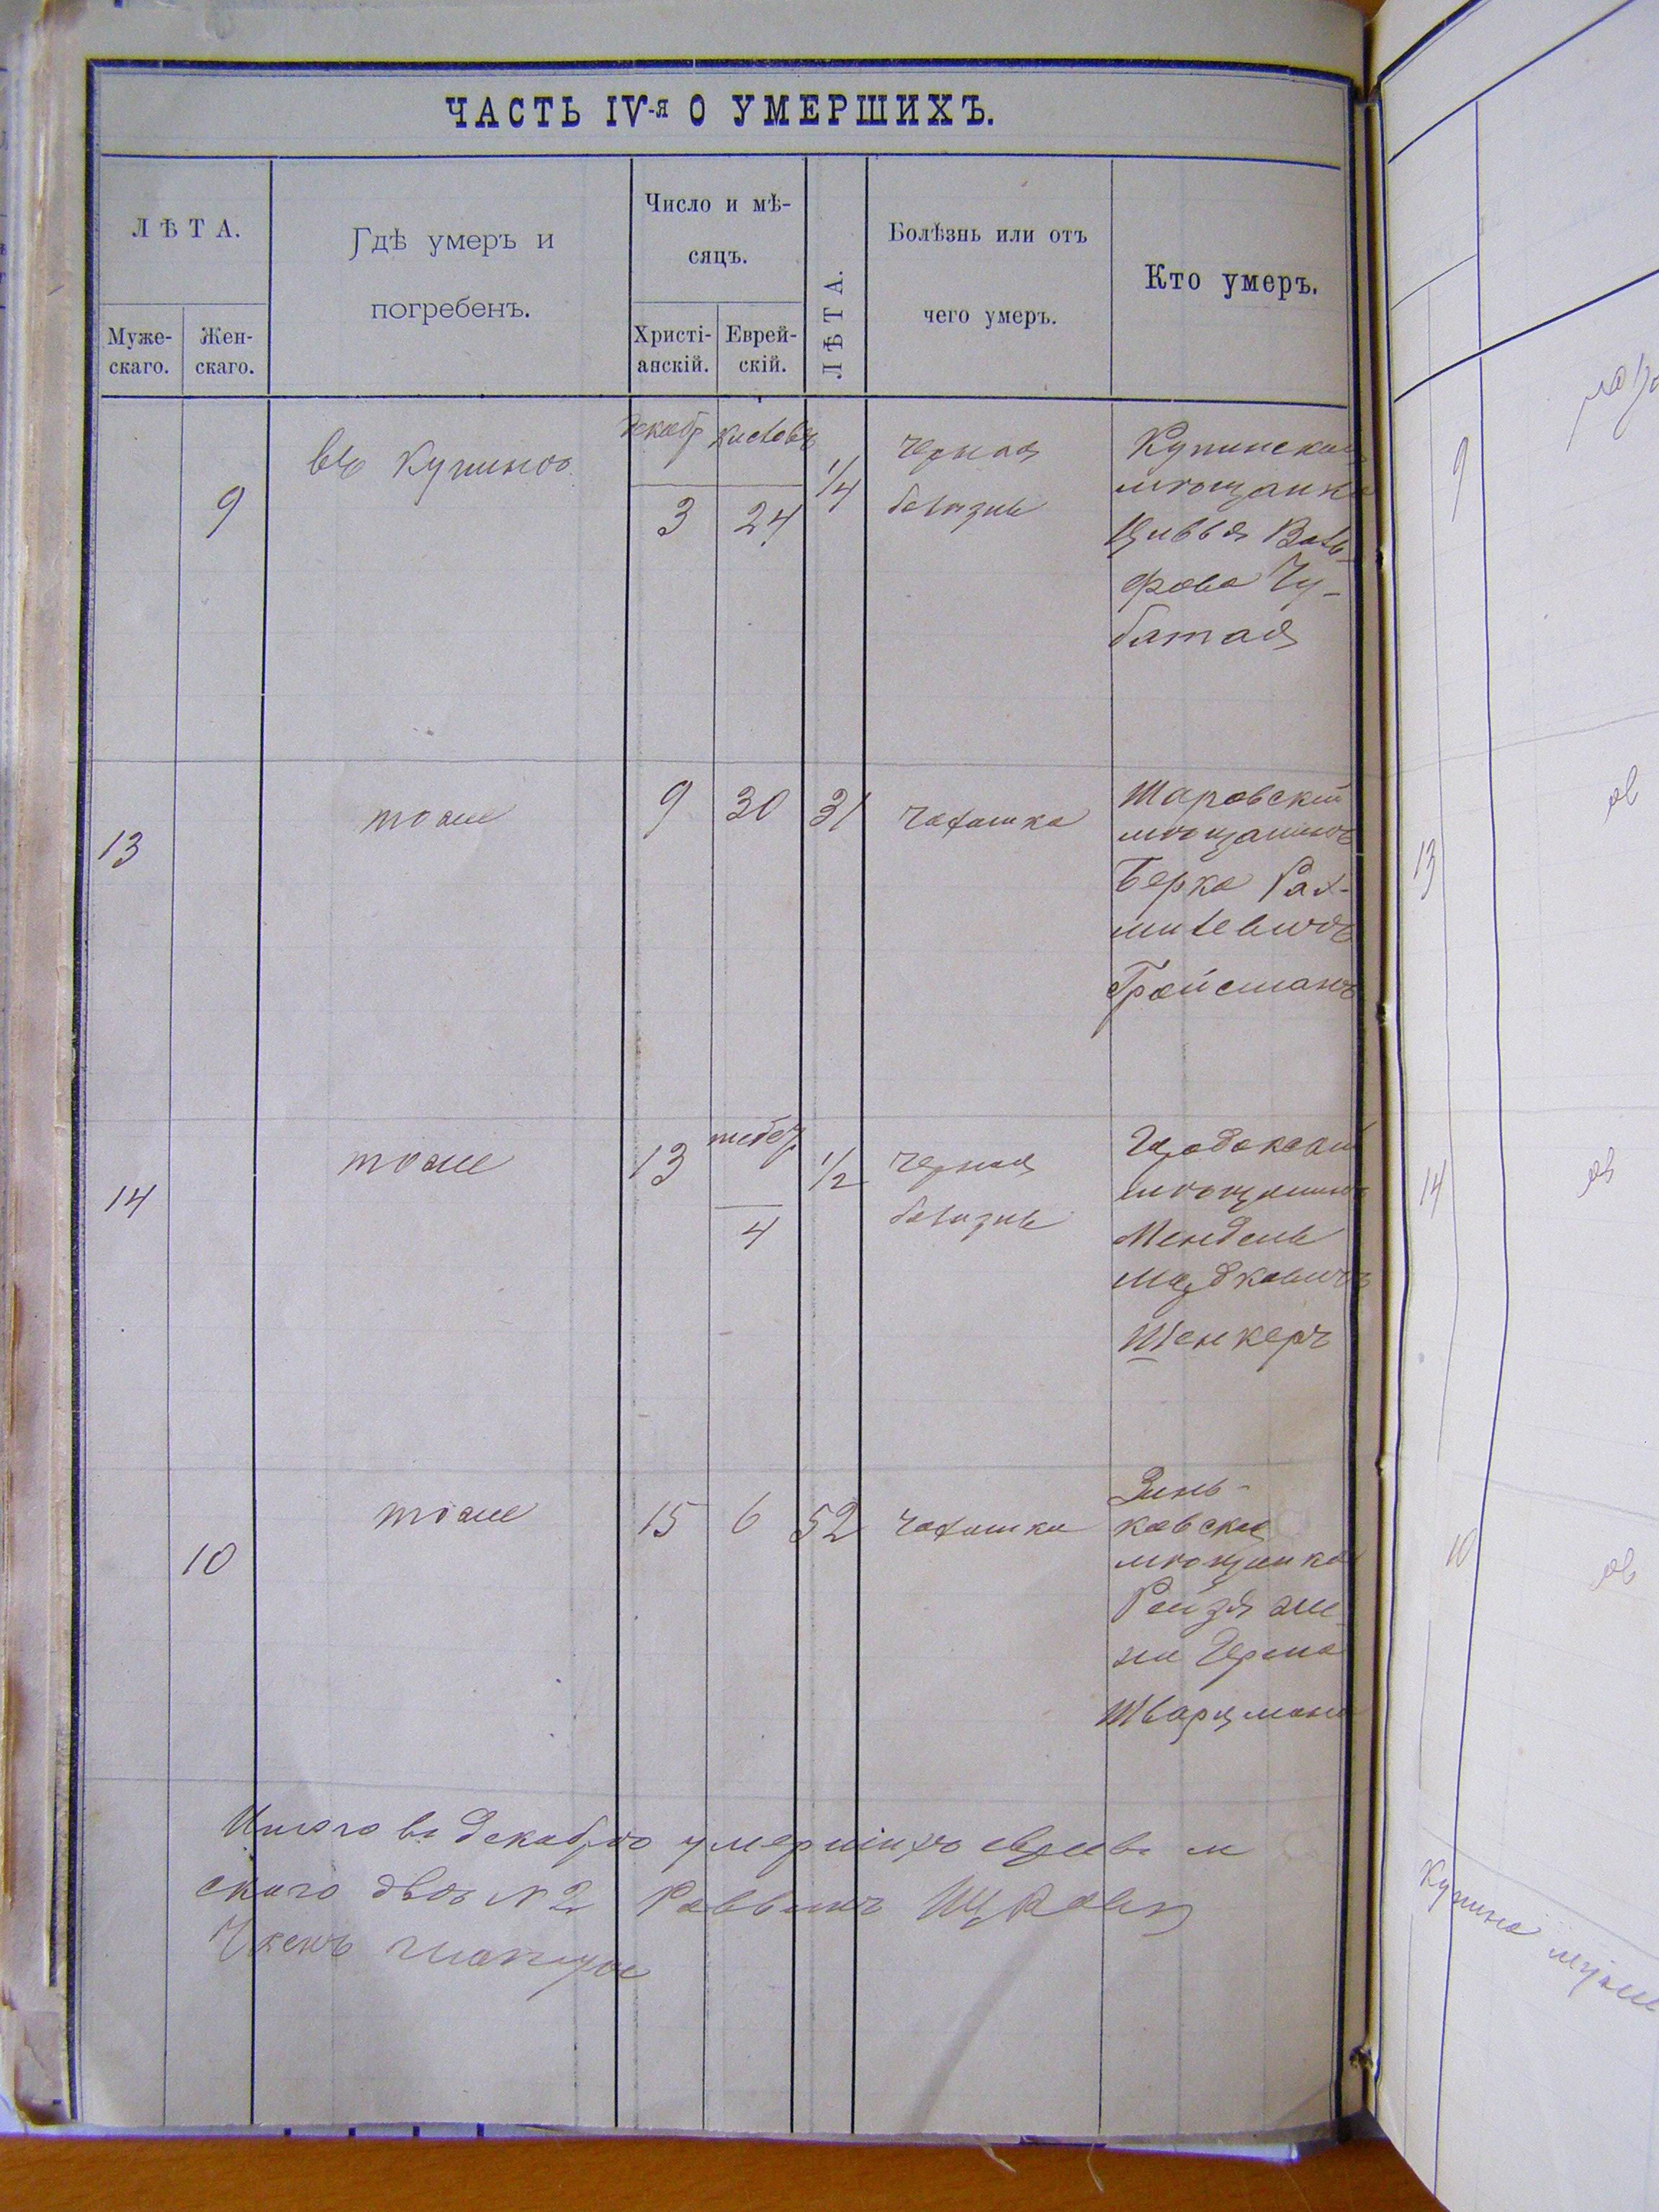 ЧАСТЬ IV-я О УМЕРШИХЪ.
ЛѢТА.
Муже-
скаго.
Жен-
скаго.
Гдѣ умеръ и
погребенъ.
Число и мѣ-
сяцъ.
Христі-
анскій.
Еврей-
скій.
ЛѢТА.
Болѣзнь или отъ
чего умеръ.
Кто умеръ.
9
въ Купинѣ
декабр
3
кислевъ
24
1/4
черная
болѣзнь
Купинская
мѣщанка
Цивья Воль-
фова Чу-
батая
13
тоже
9
30
31
чахотка
Шаровскій
мѣщанинъ
Берко Рах-
милевичъ
Гройсманъ
14
тоже
13
тебет
4
1/2
черная
болѣзнь
Городокскій
мѣщанинъ
Мендель
Мордковичъ
Шенкеръ
10
тоже
15
6
52
чахотка
Зинь-
ковская
мѣщанка
Рейзя же-
на
Шварцмана
Итого въ декабрѣ умершихъ евреевъ м
скаго два № 2 Раввинъ
Членъ
9
13
14
10
Купина